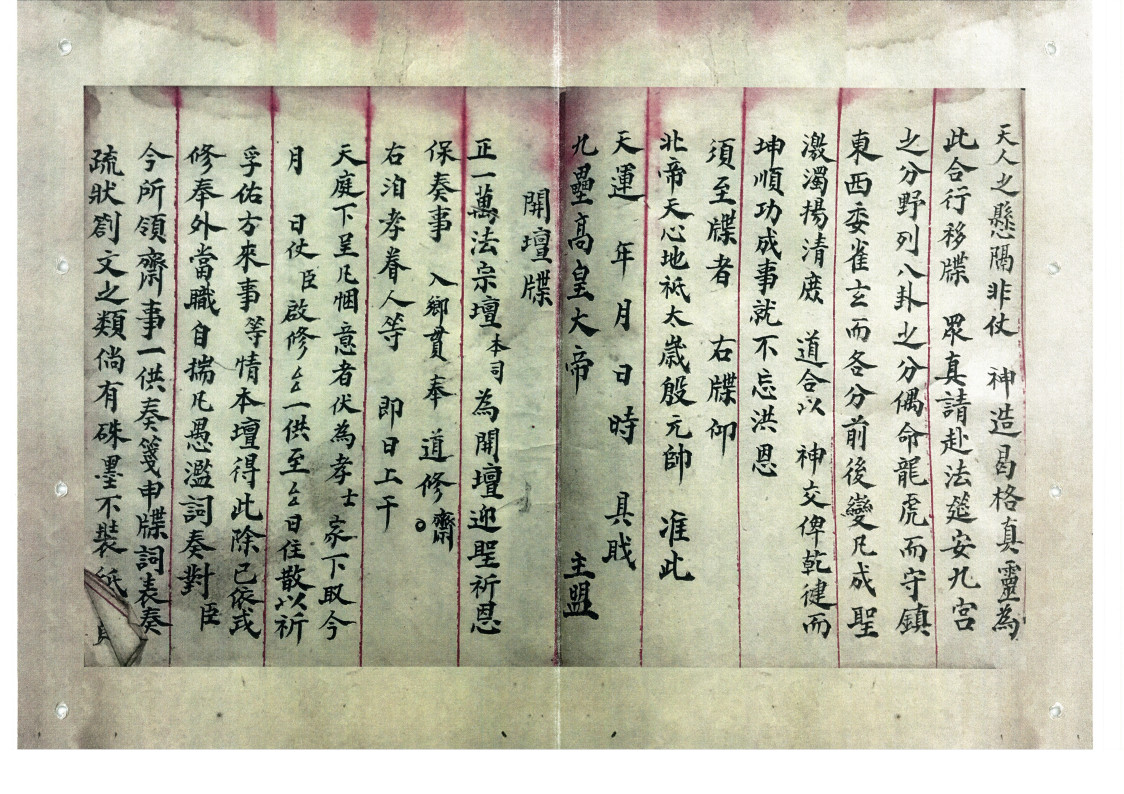 天人之懸隔非仗　神造曷格真靈為
此合行移牒　眾真請赴法筵安九宮
之分野列八卦之分偶命龍虎而守鎮
東西委雀玄而各分前後變凡成聖
激濁揚清庶　道合以　神交俾乾健而
坤順功成事就不忘洪恩
須至牒者　右牒仰
北帝天心地祇太歲殷元帥　准此
天運　年　月　日　時　具戝
九壘高皇大帝　主盟
開壇牒
正一萬法宗壇本司為開壇迎聖祈恩
保奏事　入鄉貫奉　道修齋。
右洎孝眷人等　即日上干
天庭下呈凡悃意者伏為孝士家下取今
月　日仗臣啟修厶厶一供至厶日住散以祈
孚佑方來事等情本壇得此除已依式
修奉外當職自揣凡愚濫詞奏對臣
今所領齋事一供奏箋申牒詞表奏
疏狀劄文之類倘有硃墨不裝紙